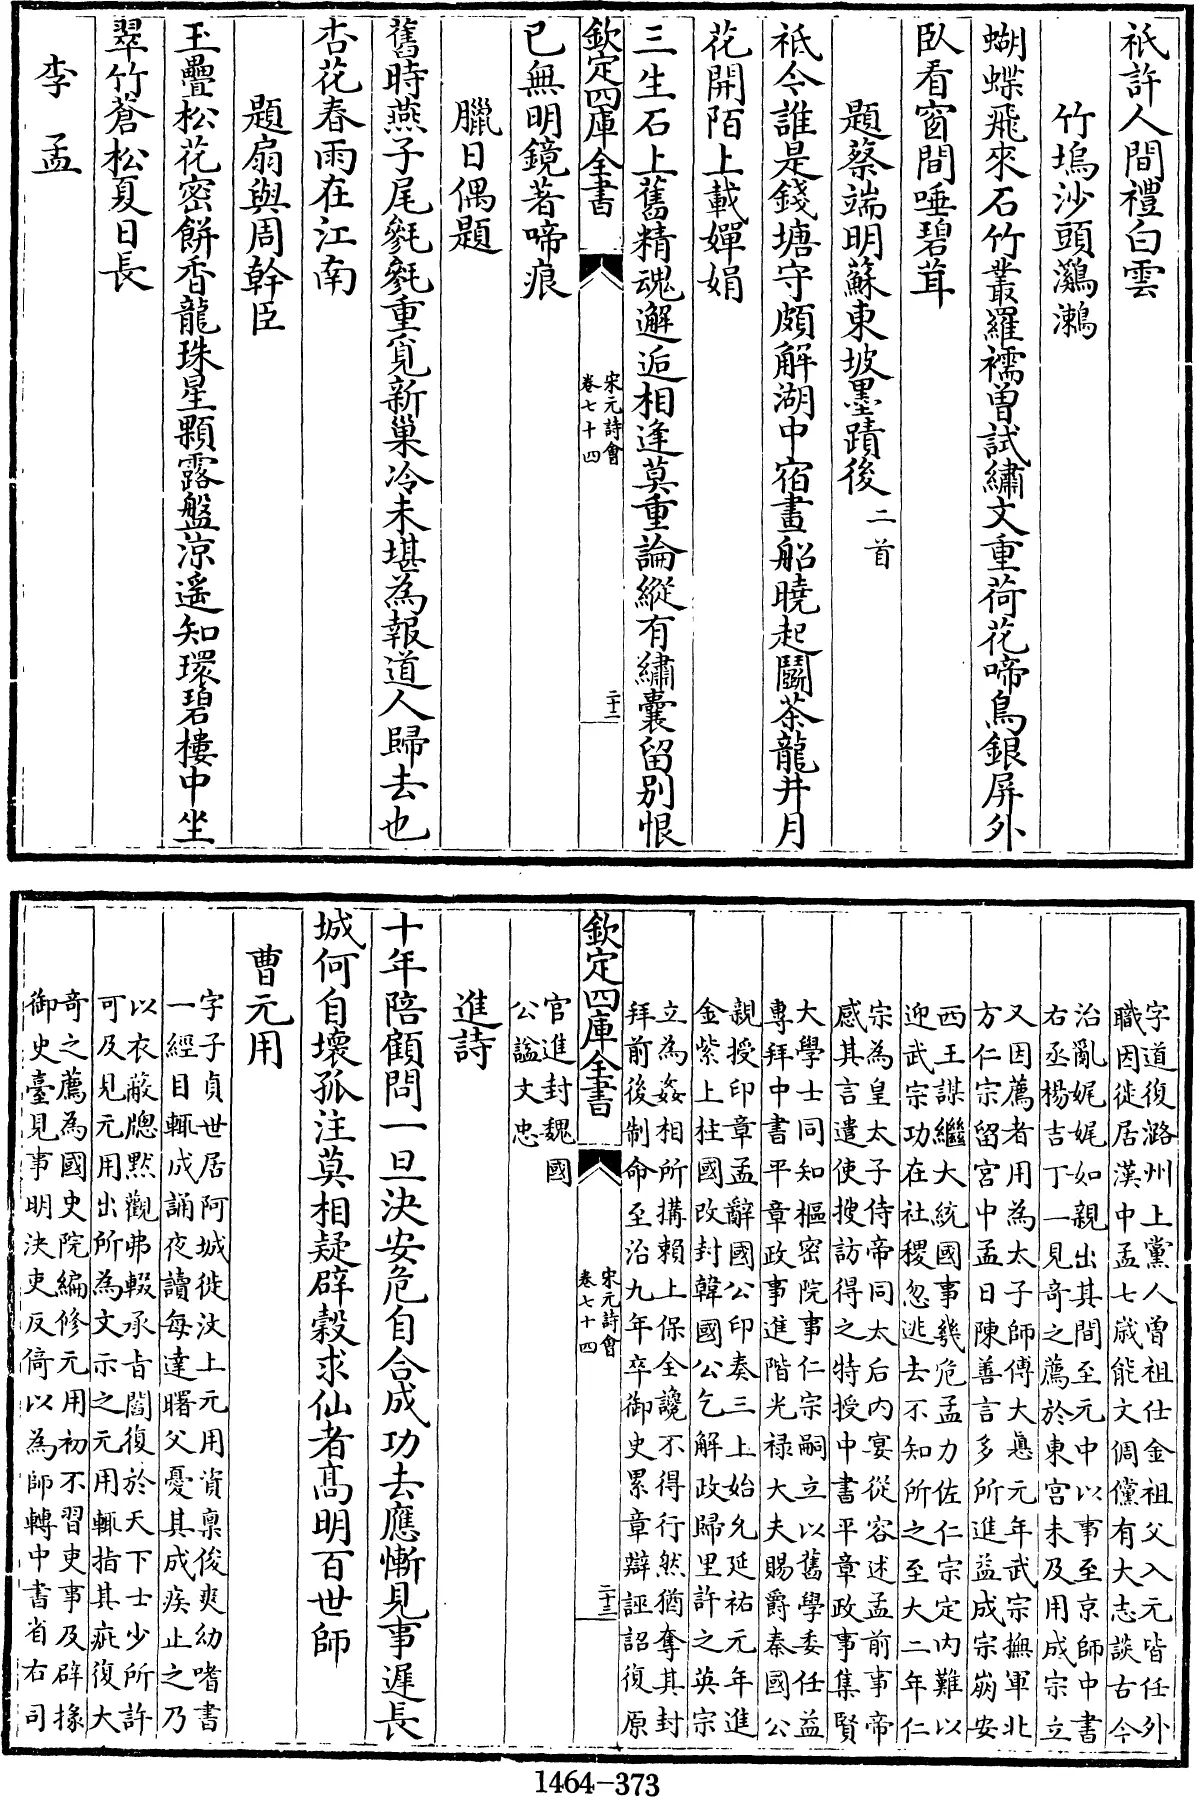 祇許人間禮白雲
竹塢沙頭鸂鶒
蝴蝶飛來石竹叢羅襦曾試繡文重荷花啼鳥銀屏外
臥看窗間唾碧茸
題蔡端明蘇東坡墨蹟後二首
祇今誰是錢塘守頗解湖中宿畫船曉起鬭茶龍井月
花開陌上載嬋娟
三生石上舊精魂邂逅相逢莫重論縱有繡囊留別恨
欽定四庫全書
宋元詩會
卷七十四
二十二
已無明鏡著啼痕
臘日偶題
舊時燕子尾毿毿重覓新巢冷未堪為報道人歸去也
杏花春雨在江南
題扇與周幹臣
玉疊松花密餅香龍珠星顆露盤涼遥知環碧樓中坐
翠竹蒼松夏日長
李孟
字道復潞州上黨人曾祖仕金祖父入元皆任外
職因徙居漢中孟七歲能文倜儻有大志談古今
治亂娓娓如親出其間至元中以事至京師中書
右丞楊吉丁一見奇之薦於東宮未及用成宗立
又因薦者用為太子師傅大悳元年武宗撫軍北
方仁宗留宮中孟日陳善言多所進益成宗崩安
西王謀繼大統國事幾危孟力佐仁宗定内難以
迎武宗功在社稷忽逃去不知所之至大二年仁
宗為皇太子侍帝同太后内宴從容述孟前事帝
感其言遣使搜訪得之特授中書平章政事集賢
大學士同知樞密院事仁宗嗣立以舊學委任益
專拜中書平章政事進階光禄大夫賜爵秦國公
親授印章孟辭國公印奏三上始允延祐元年進
金紫上柱國改封韓國公乞解政歸里許之英宗
立為姦相所搆賴上保全讒不得行然猶奪其封
拜前後制命至治九年卒御史累章辯誣詔復原
欽定四庫全書
宋元詩會
卷七十四
二十三
官進封魏國
公諡文忠
進詩
十年陪顧問一旦決安危自合成功去應慚見事遲長
城何自壞孤注莫相疑辟穀求仙者高明百世師
曹元用
字子貞世居阿城徙汶上元用資禀俊爽幼嗜書
一經目輒成誦夜讀每達曙父憂其成疾止之乃
以衣蔽牎默觀弗輟承旨閻復於天下士少所許
可及見元用出所為文示之元用輒指其疵復大
奇之薦為國史院編修元用初不習吏事及辟掾
御史臺見事明決吏反倚以為師轉中書省右司
1464-373